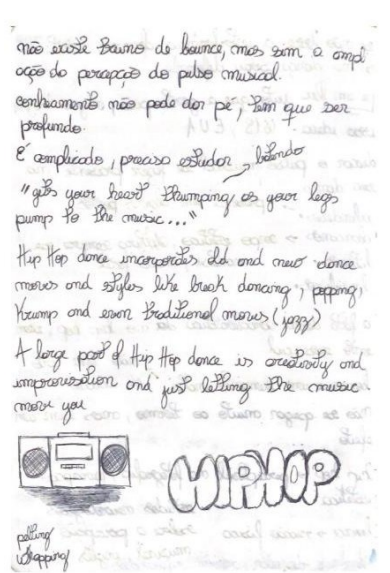 não existe treino de bounce, mas sim a ampli
ação da percepção do pulso musical.
conhecimento não pode dar pé, tem que ser
profundo.
É complicado, preciso estudar, batendo
"gets your heart thumping as your legs
pump to the music..."
Hip Hop dance incorporates old and new dance
moves and styles like break dancing, popping,
Krump and even traditional moves (jazz)
A large part of Hip Hop dance is creativity and
improvisation and just letting the music
move you
HIPHOP